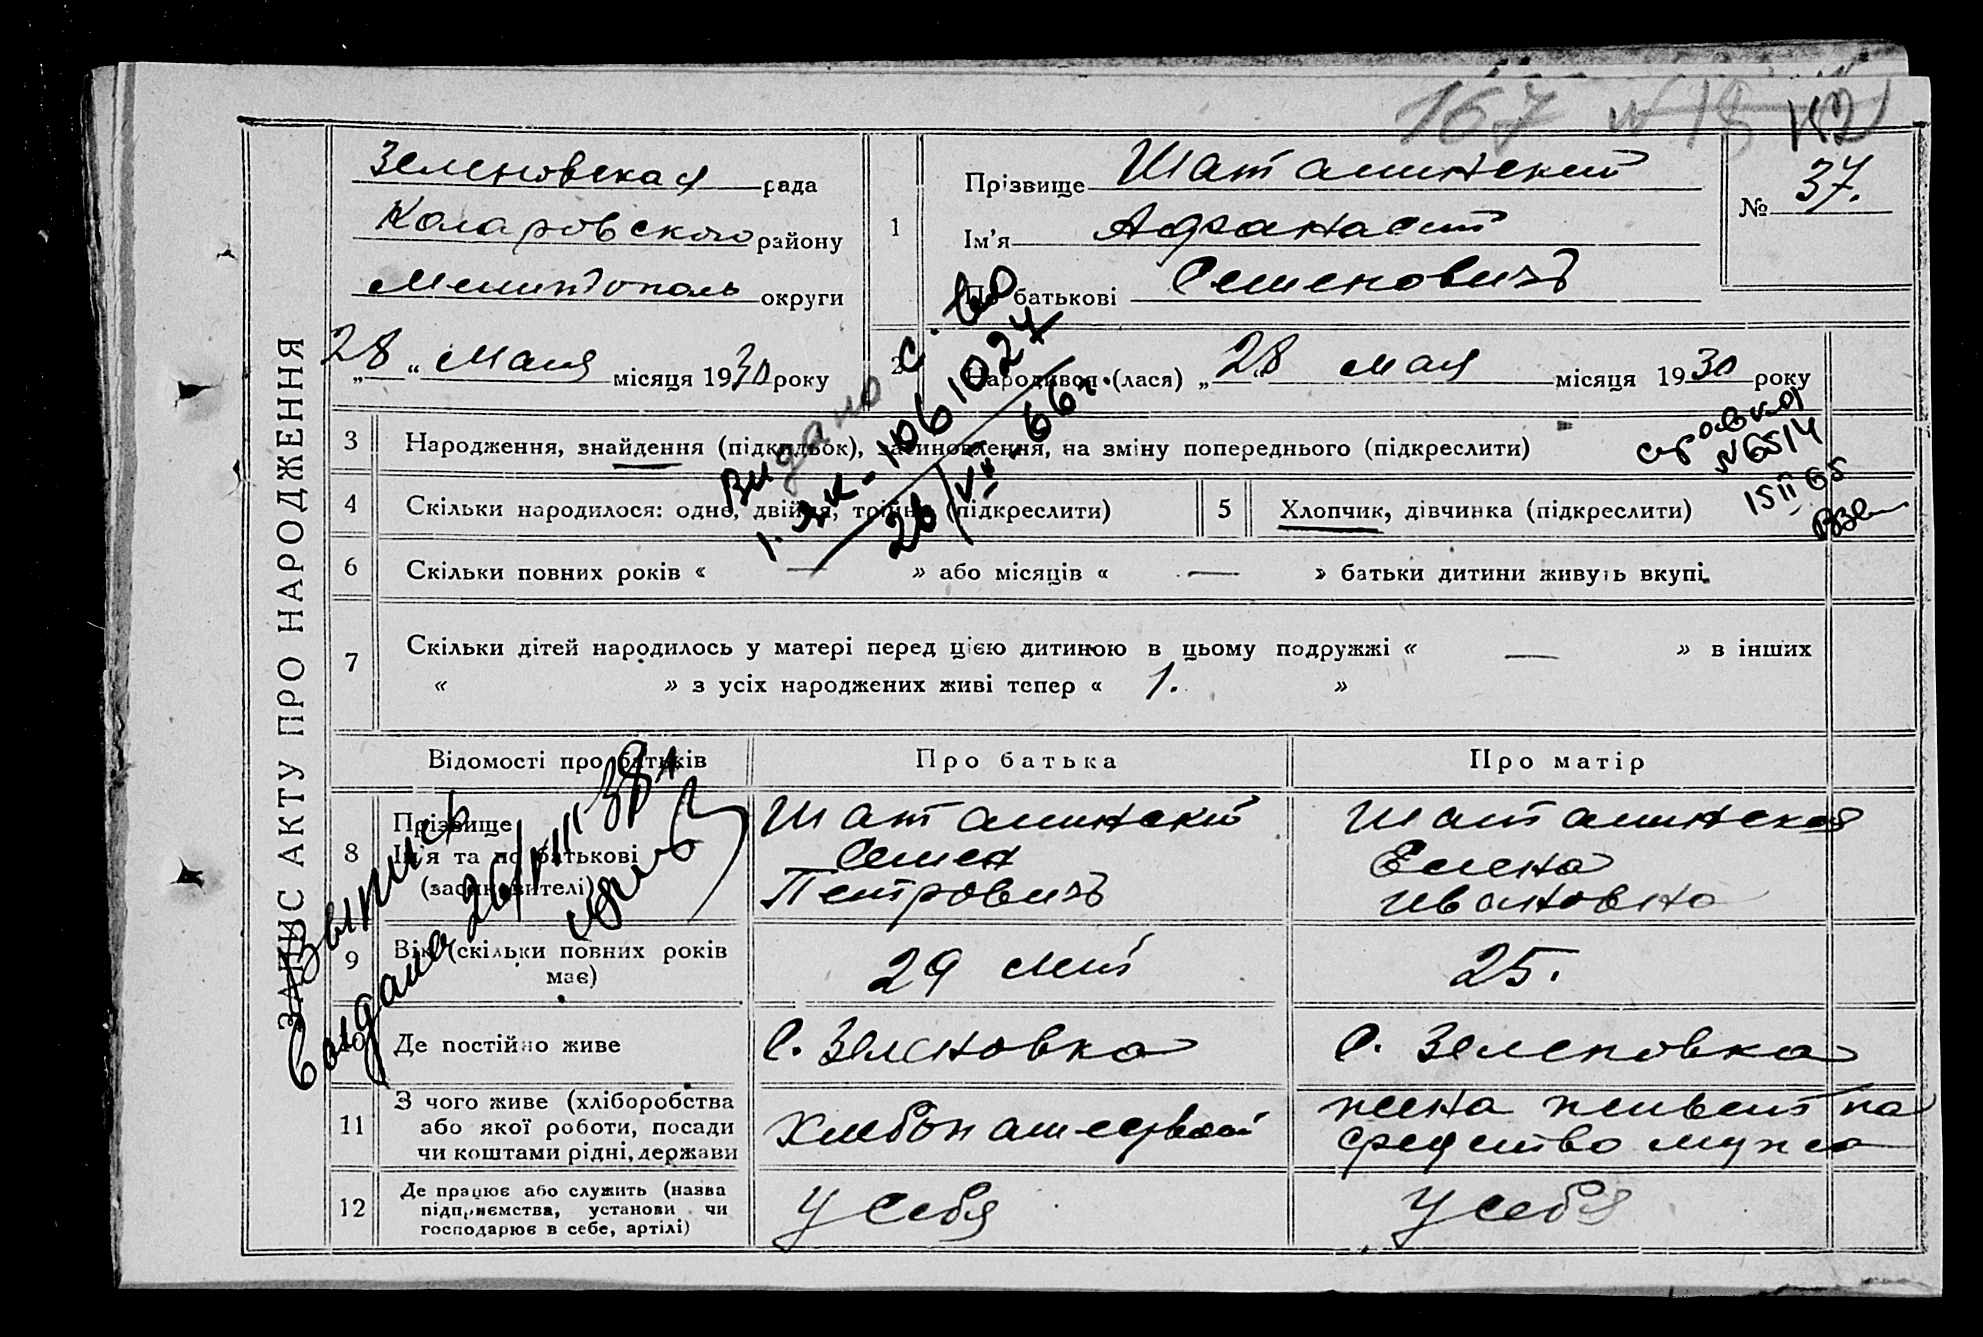 167 № 18 142
Зеленовская рада
Коларовского району
Мелитополь округи
„28“ Мая місяця 1930 року
1
Прізвище Шаталинский
Ім’я Афанасий
По батькові Семеновичъ
№ 37.
2
Народився (лася) „28“ мая місяця 1930 року
Видано с. во
I. ЯК - 1061027
26/VII - 66г.
справка
№ 6514
15 II 65
ЗАПИС АКТУ ПРО НАРОДЖЕННЯ
3 Народження, знайдення (підкидьок), засиновлення, на зміну попереднього (підкреслити)
4 Скільки народилося: одне, двійня, трійня (підкреслити)
5 Хлопчик, дівчинка (підкреслити)
6 Скільки повних років « — » або місяців « — » батьки дитини живуть вкупі.
7 Скільки дітей народилось у матері перед цією дитиною в цьому подружжі « — » в інших
« » з усіх народжених живі тепер « 1. »
Відомості про батьків
Про батька
Про матір
8 Прізвище
Ім’я та по батькові
(засиновителі)
Шаталинский
Семен
Петровичъ
Шаталинская
Елена
Ивановна
выпись
выдана 26/VIII 38
9 Вік (скільки повних років
має)
29 лет
25.
10 Де постійно живе
С. Зеленовка
С. Зеленовка
11 З чого живе (хліборобства
або якої роботи, посади
чи коштами рідні, держави
Хлебопашеством
жена живет на
средство мужа
12 Де працює або служить (назва
підприємства, установи чи
господарює в себе, артілі)
У себя
У себя